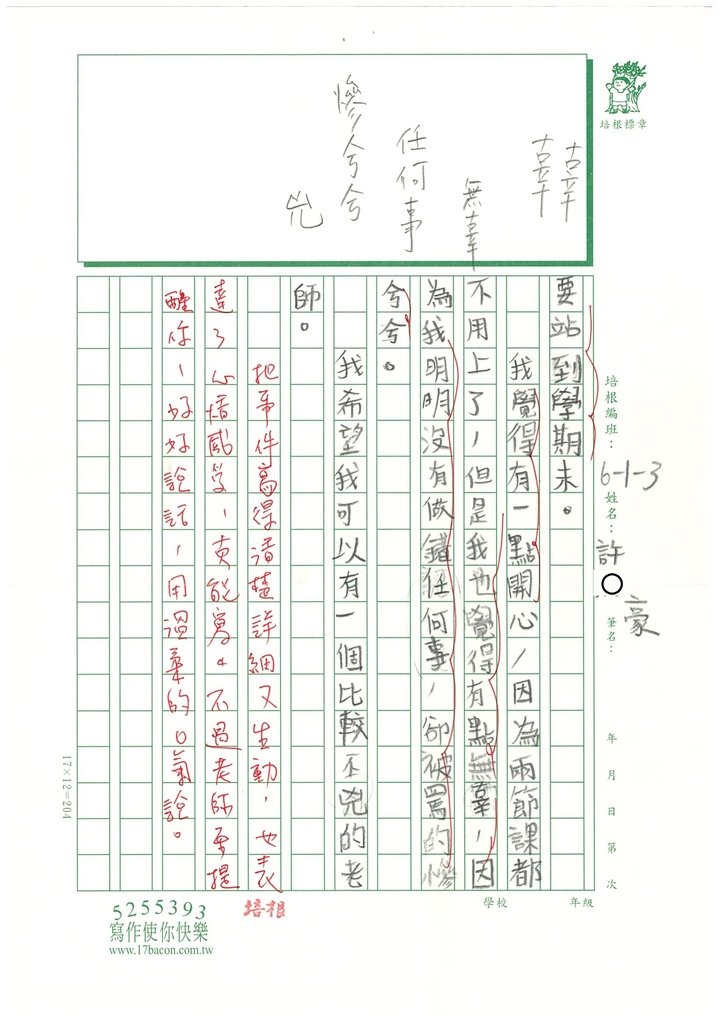 培根標章
培根編班：
6-1-3
姓名：
許
豪
筆名：
年 月 日 第 次
辜辜
無辜
任何事
慘兮兮
兇
要站到學期末。
我覺得有一點開心，因為兩節課都
不用上了，但是我也覺得有點無辜，因
為我明明沒有做錯任何事，卻被罵的慘
兮兮。
我希望我可以有一個比較不兇的老
師。
把事件寫得清楚詳細又生動，也表
達了心情感受，真能寫。不過老師要提
醒你，好好說話，用溫柔的口氣說。
17×12=204
5255393
培根
寫作使你快樂
www.17bacon.com.tw
學校
年級